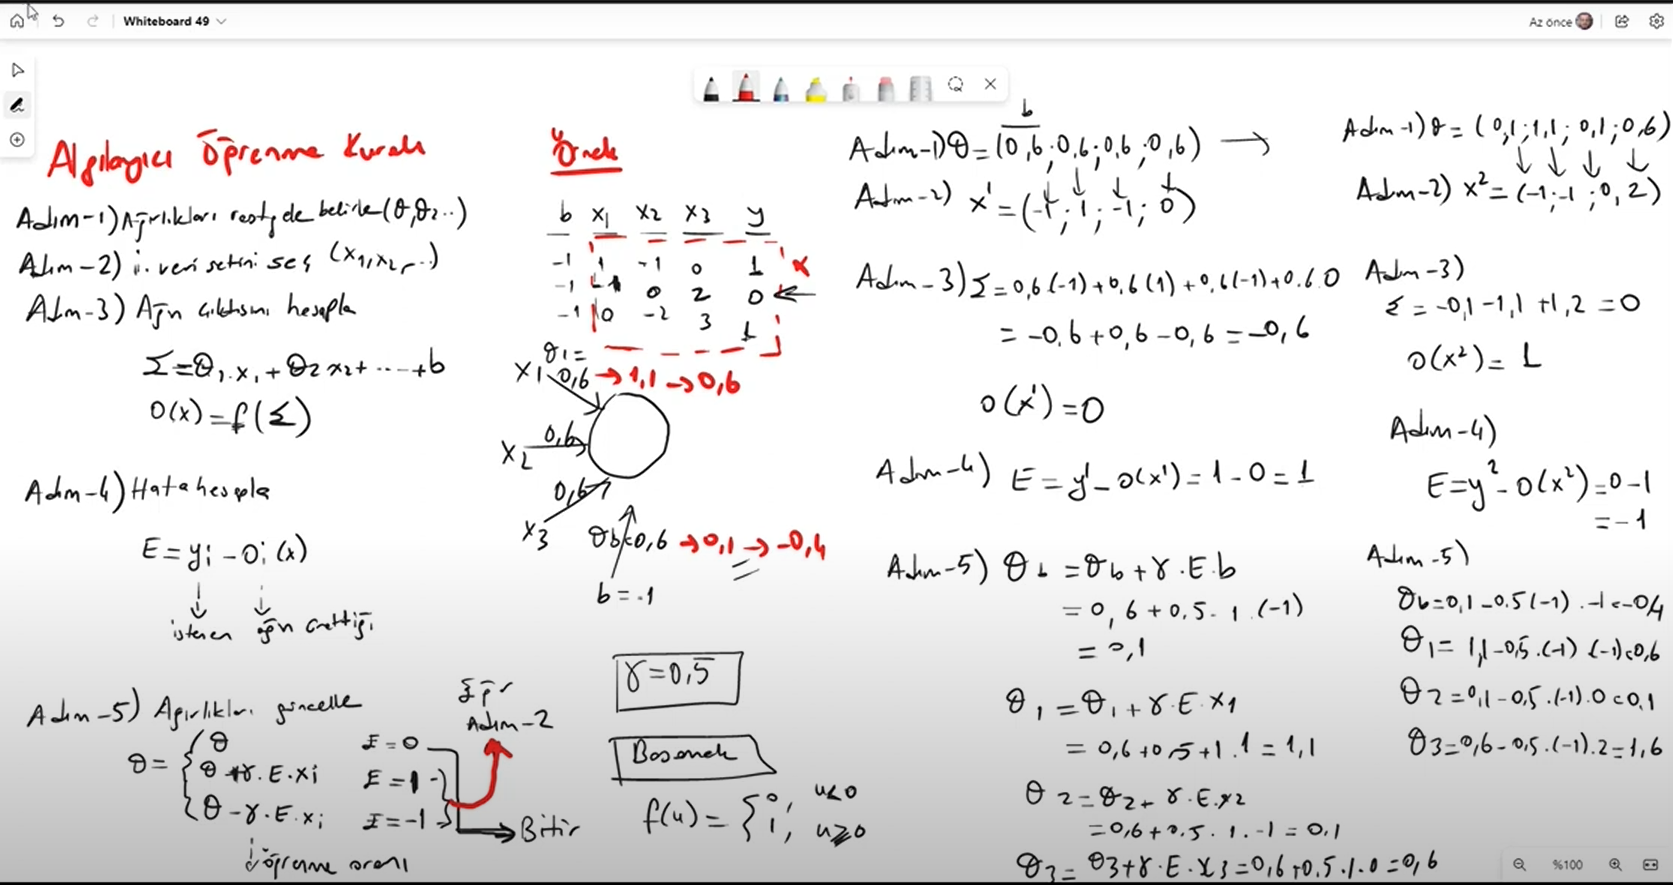 Whiteboard 49
Az önce
Algılayıcı Öğrenme Kuralı
Adım-1) Ağırlıkları rastgele belirle (θ₁θ₂..)
Adım-2) i. veri setini seç (x₁,x₂,..)
Adım-3) Ağın çıktısını hesapla
Σ=θ₁.x₁+θ₂x₂+...+b
O(x)=f(Σ)
Adım-4) Hata hesapla
E=yᵢ-Oᵢ(x)
istenen ağın ürettiği
Adım-5) Ağırlıkları güncelle
θ= { θ E=0
θ+γ.E.xᵢ E=1
θ-γ.E.xᵢ E=-1
öğrenme oranı
Adım-2
Bitir
Örnek
b x₁ x₂ x₃ y
-1 1 -1 0 1
-1 -1 0 2 0 ←
-1 0 -2 3 1
θ₁=
x₁ 0,6 → 1,1 → 0,6
x₂ 0,6
x₃ 0,6
θb=0,6 → 0,1 → -0,4
b=-1
γ=0,5
Basamak
f(u)= { 0, u<0
1, u≥0
b
Adım-1) θ=(0,6;0,6;0,6;0,6) →
Adım-2) x¹=(-1;1;-1;0)
Adım-3) Σ=0,6(-1)+0,6(1)+0,6(-1)+0.6.0
=-0,6+0,6-0,6=-0,6
O(x¹)=0
Adım-4) E=y¹-O(x¹)=1-0=1
Adım-5) θb=θb+γ.E.b
=0,6+0,5.1.(-1)
=0,1
θ₁=θ₁+γ.E.x₁
=0,6+0,5+1.1=1,1
θ₂=θ₂+γ.E.x₂
=0,6+0.5.1.-1=0,1
θ₃=θ₃+γ.E.x₃=0,6+0,5.1.0=0,6
Adım-1) θ=(0,1;1,1;0,1;0,6)
Adım-2) x²=(-1;-1;0,2)
Adım-3)
Σ=-0,1-1,1+1,2=0
O(x²)=1
Adım-4)
E=y²-O(x²)=0-1
=-1
Adım-5)
θb=0,1-0.5(-1).-1=-0,4
θ₁=1,1-0,5.(-1)(-1)=0,6
θ₂=0,1-0,5.(-1).0=0,1
θ₃=0,6-0,5.(-1).2=1,6
%100